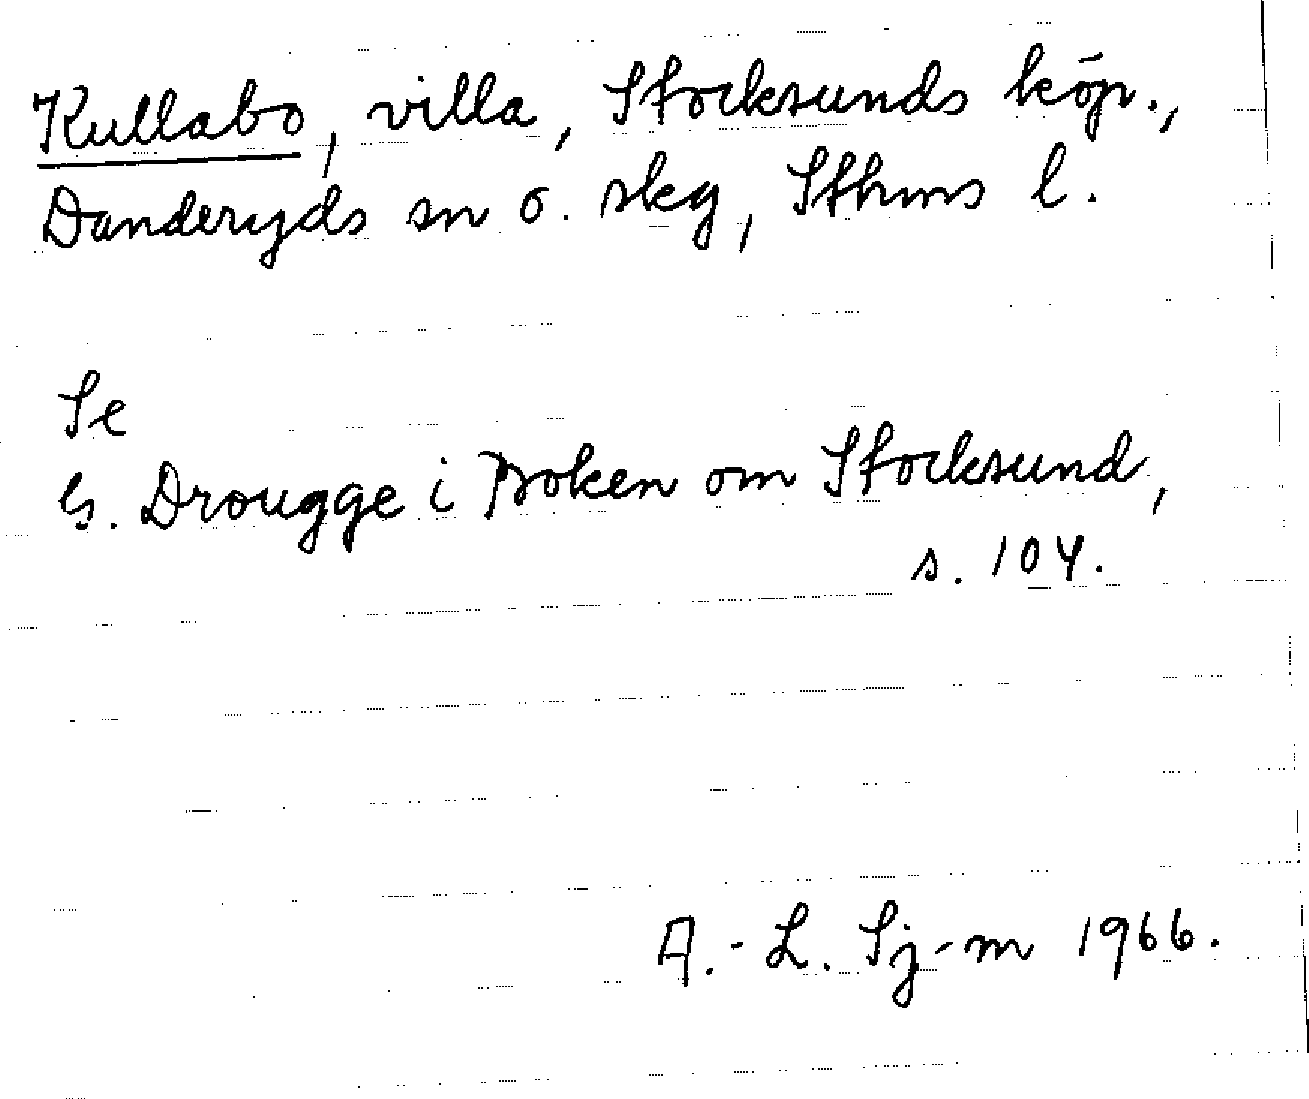 Kullabo, villa, Stocksunds köp.,
Danderyds sn o. skg, Sthms l.
Se
G. Drougge i Boken om Stocksund,
s. 104.
A.-L. Sj-m 1966.